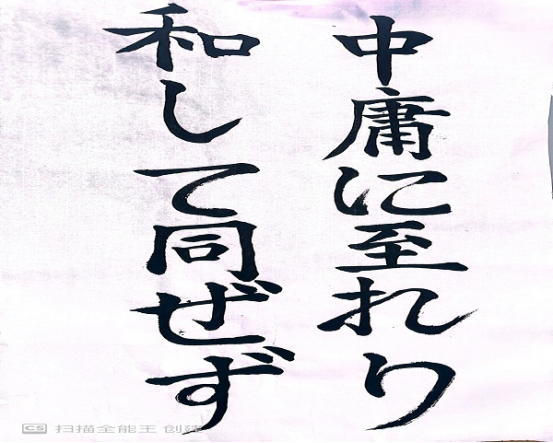 中庸に至れり
和して同ぜず
CS 扫描全能王 创建